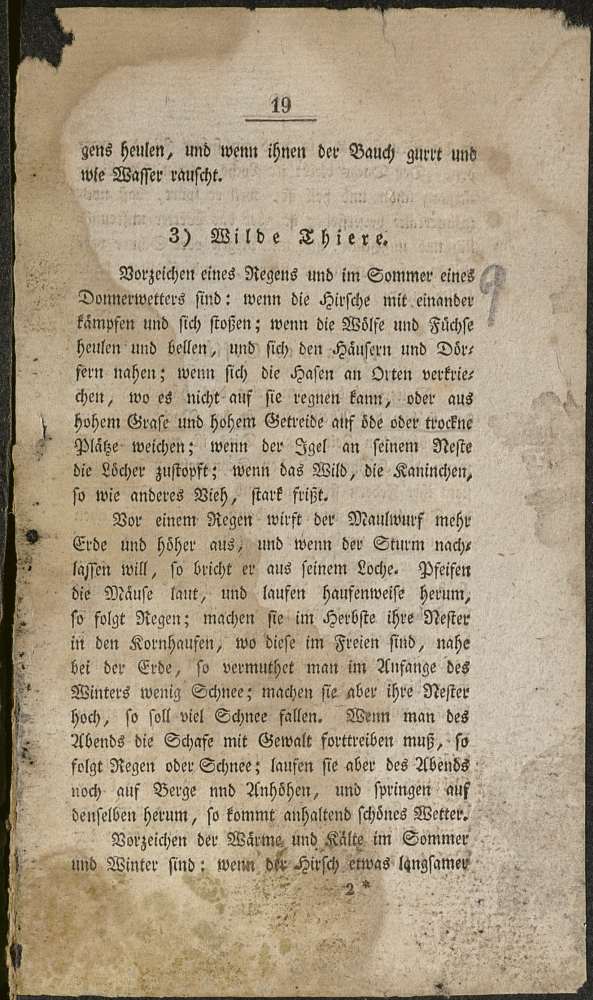 19
gens heulen, und wenn ihnen der Bauch gurrt und
wie Wasser rauscht.
3) Wilde Thiere.
Vorzeichen eines Regens und im Sommer eines
Donnerwetters sind: wenn die Hirsche mit einander
kämpfen und sich stoßen; wenn die Wölfe und Füchse
heulen und bellen, und sich den Häusern und Dör-
fern nahen; wenn sich die Hasen an Orten verkrie-
chen, wo es nicht auf sie regnen kann, oder aus
hohem Grase und hohem Getreide auf öde oder trockne
Plätze weichen; wenn der Igel an seinem Neste
die Löcher zustopft; wenn das Wild, die Kaninchen,
so wie anderes Vieh, stark frißt.
Vor einem Regen wirft der Maulwurf mehr
Erde und höher aus, und wenn der Sturm nach-
lassen will, so bricht er aus seinem Loche. Pfeifen
die Mäuse laut, und laufen haufenweise herum,
so folgt Regen; machen sie im Herbste ihre Nester
in den Kornhaufen, wo diese im Freien sind, nahe
bei der Erde, so vermuthet man im Anfange des
Winters wenig Schnee; machen sie aber ihre Nester
hoch, so soll viel Schnee fallen. Wenn man des
Abends die Schafe mit Gewalt forttreiben muß, so
folgt Regen oder Schnee; laufen sie aber des Abends
noch auf Berge nnd Anhöhen, und springen auf
denselben herum, so kommt anhaltend schönes Wetter.
Vorzeichen der Wärme und Kälte im Sommer
und Winter sind: wenn der Hirsch etwas langsamer
2 *
9